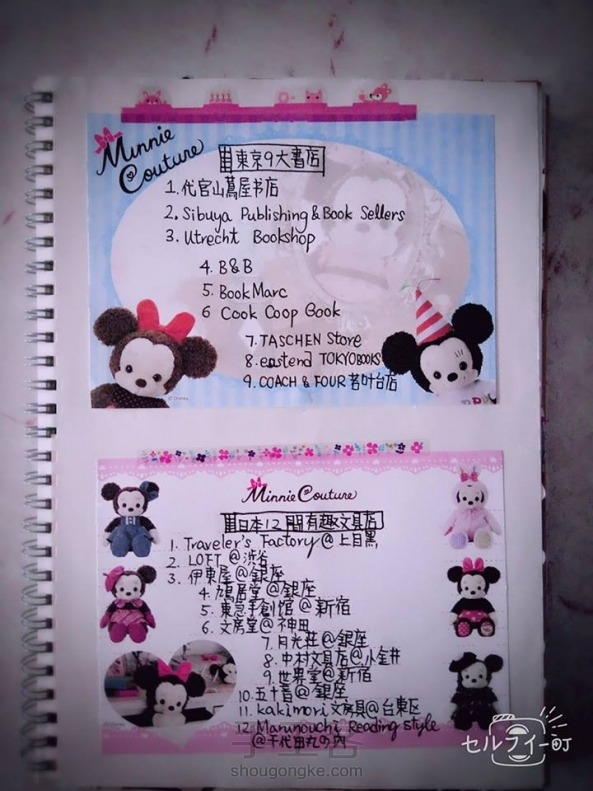 Minnie
Couture
東京9大書店
1.代官山蔦屋书店
2.Sibuya Publishing & Book Sellers
3.Utrecht Bookshop
4.B&B
5.BookMarc
6 Cook Coop Book
7.TASCHEN Store
8.eastend TOKYOBOOKS
9.COACH & FOUR 若叶台店
© Disney
Minnie Couture
日本12間有趣文具店
1. Traveler's Factory@上目黑
2. LOFT @渋谷
3. 伊東屋@銀座
4.鳩居堂@銀座
5. 東急手創館@新宿
6. 文房堂@神田
7.月光荘@銀座
8.中村文具店@小金井
9.世界堂@新宿
10.五十音@銀座
11.kakimori文房具@台東区
12.Marunouchi Reading style
@千代田丸の内
shougongke.com
セルフィー町